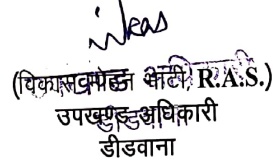 (विकास मोहन भाटी, R.A.S.)
उपखण्ड अधिकारी
डीडवाना